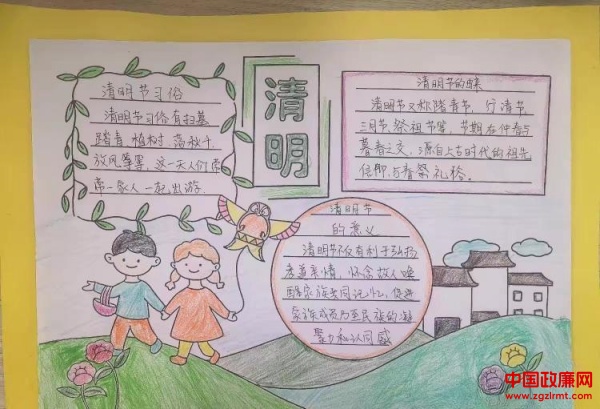 清明节习俗
清明节习俗有扫墓
踏青、植树、荡秋千
放风筝等,这一天人们常
常一家人一起出游.
清明
清明节的由来
清明节又称踏青节、行清节
三月节、祭祖节等,节期在仲春与
暮春之交,源自上古时代的祖先
信仰与春祭礼俗.
清明节
的意义
清明节不仅有利于弘扬
孝道亲情,怀念故人唤
醒家族共同记忆,促进
家族成员乃至民族的凝
聚力和认同感
中国政廉网
www.zgzlrmt.com